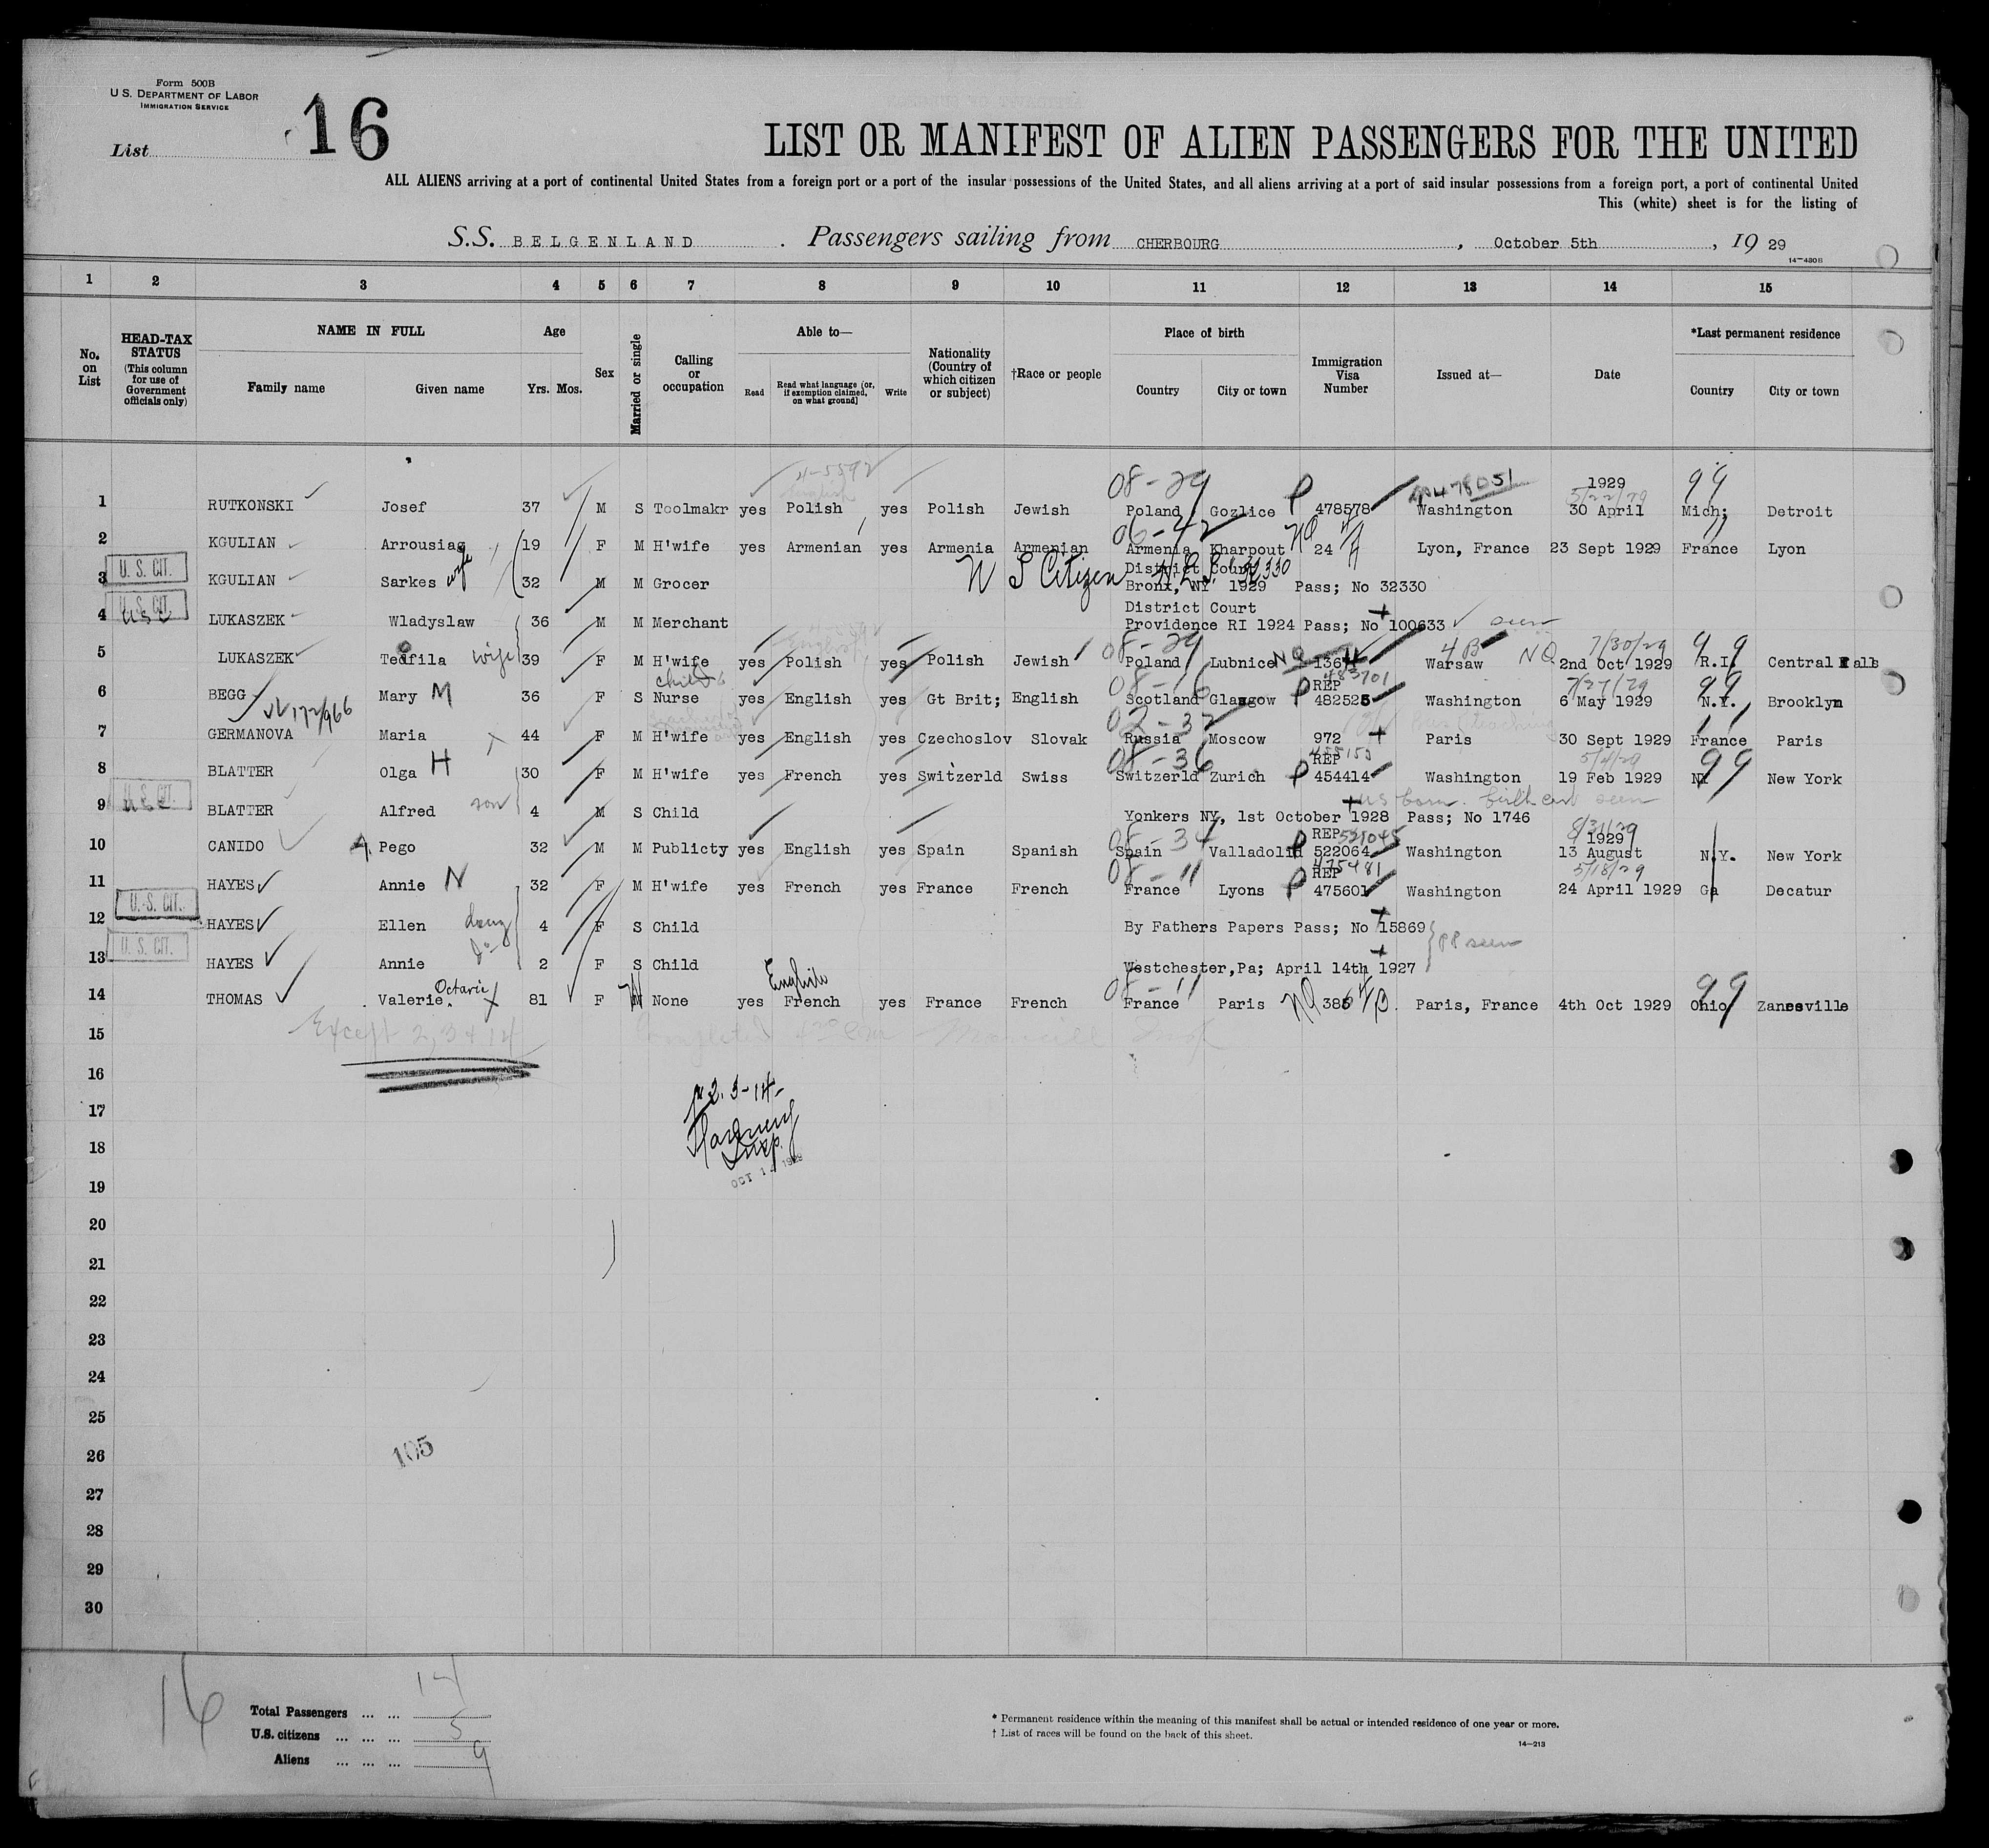 Form 500B
U.S. DEPARTMENT OF LABOR
IMMIGRATION SERVICE
List 16
LIST OR MANIFEST OF ALIEN PASSENGERS FOR THE UNITED
ALL ALIENS arriving at a port of continental United States from a foreign port or a port of the insular possessions of the United States, and all aliens arriving at a port of said insular possessions from a foreign port, a port of continental United
This (white) sheet is for the listing of
S.S. BELGENLAND . Passengers sailing from CHERBOURG , October 5th , 19 29
14-480B
1 2 3 4 5 6 7 8 9 10 11 12 13 14 15
No. on List
HEAD-TAX STATUS (This column for use of Government officials only)
NAME IN FULL
Family name Given name
Age
Yrs. Mos.
Sex
Married or single
Calling or occupation
Able to—
Read Read what language (or, if exemption claimed, on what ground) Write
Nationality (Country of which citizen or subject)
†Race or people
Place of birth
Country City or town
Immigration Visa Number
Issued at—
Date
*Last permanent residence
Country City or town
08-29 478051 1929 5/22/29 99
1 RUTKONSKI Josef 37 M S Toolmakr yes Polish yes Polish Jewish Poland Gozlice P 478578 Washington 30 April Mich; Detroit
06-42
2 KGULIAN Arrousiag wife 19 F M H'wife yes Armenian yes Armenia Armenian Armenia Kharpout NQ 24 Lyon, France 23 Sept 1929 France Lyon
U. S. CIT. District Court
3 KGULIAN Sarkes 32 M M Grocer U S Citizen Bronx, NY 1929 Pass; No 32330
U. S. CIT. District Court
4 USC LUKASZEK Wladyslaw 36 M M Merchant Providence RI 1924 Pass; No 100633 seen
08-29 4B NQ 7/30/29 99
5 LUKASZEK Teofila wife 39 F M H'wife yes Polish yes Polish Jewish Poland Lubnice NQ Warsaw 2nd Oct 1929 R.I. Central Falls
child's 08-16 REP 483701 7/27/29 99
6 BEGG Mary M 36 F S Nurse yes English yes Gt Brit; English Scotland Glasgow P 482525 Washington 6 May 1929 N.Y. Brooklyn
172/966
02-37
7 GERMANOVA Maria 44 F M H'wife yes English yes Czechoslov Slovak Russia Moscow 972 Paris 30 Sept 1929 France Paris
08-36 455153 REP 5/4/29 99
8 BLATTER Olga H 30 F M H'wife yes French yes Switzerld Swiss Switzerld Zurich P 454414 Washington 19 Feb 1929 NY New York
U. S. CIT. US born. birth cert seen
9 USC BLATTER Alfred son 4 M S Child Yonkers NY, 1st October 1928 Pass; No 1746
08-34 REP 521045 8/31/29 1929
10 CANIDO A. Pego 32 M M Publicty yes English yes Spain Spanish Spain Valladolid P 522064 Washington 13 August N.Y. New York
08-11 475481 REP 5/18/29
11 HAYES Annie N 32 F M H'wife yes French yes France French France Lyons P 475601 Washington 24 April 1929 Ga Decatur
U. S. CIT.
12 HAYES Ellen daug 4 F S Child By Fathers Papers Pass; No 15869
U. S. CIT. PP seen
13 HAYES Annie do 2 F S Child Westchester,Pa; April 14th 1927
Octavie English 08-11 99
14 THOMAS Valerie. 81 F None yes French yes France French France Paris NQ Paris, France 4th Oct 1929 Ohio Zanesville
Except 2, 3 & 14
15
16
2. 3 - 14 -
17
Insp.
18
OCT 14 1929
19
20
21
22
23
24
25
105
26
27
28
29
30
16
Total Passengers ... ... 14
U.S. citizens ... ... ... 5
Aliens ... ... ... 9
* Permanent residence within the meaning of this manifest shall be actual or intended residence of one year or more.
† List of races will be found on the back of this sheet.
14-213